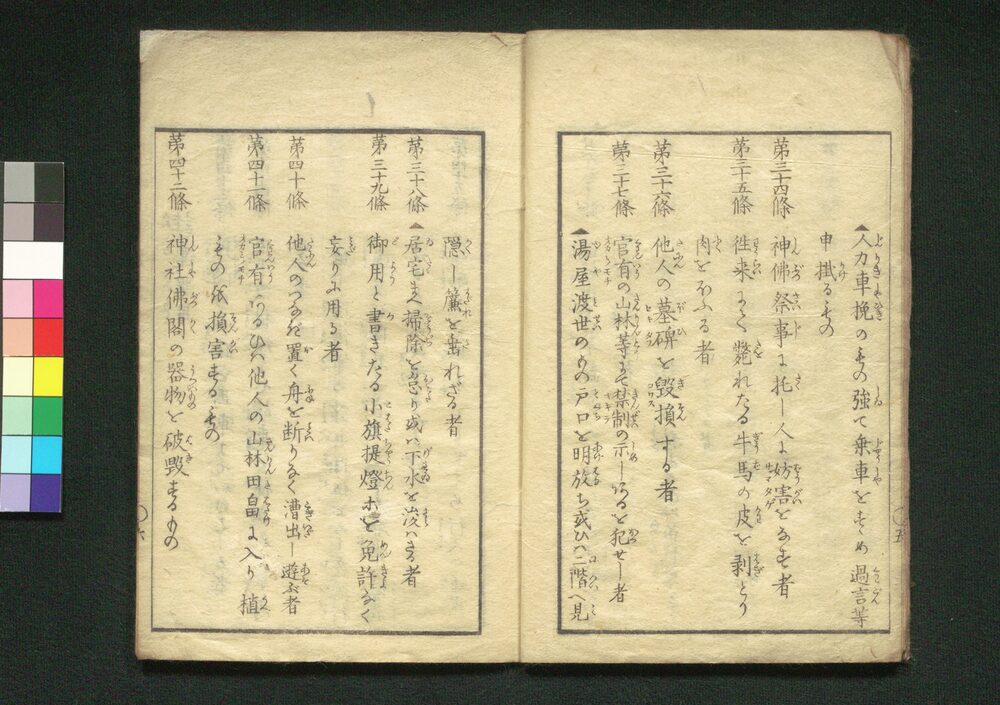 人力車挽のもの強て乗車をすゝめ過言等
申掛るもの
第三十四條 神佛祭事に托し人に妨害をなす者
第三十五條 往来にて斃れたる牛馬の皮を剥とり
肉をほふる者
第三十六條 他人の墓碑を毀損する者
第三十七條 官有の山林等にて禁制の示しあるを犯せし者
湯屋渡世のもの戸口を明放ち或ハ二階へ見
隠し簾を垂れざる者
第三十八條 居宅まへ掃除を怠り或ハ下水を浚ハざる者
第三十九條 御用と書きたる小旗提燈等を免許なく
妄りに用る者
第四十條 他人のつなぎ置く舟を断りなく漕出し遊ぶ者
第四十一條 官有あるひハ他人の山林田畠に入り植
ものを損害するもの
第四十二條 神社佛閣の器物を破毀するもの